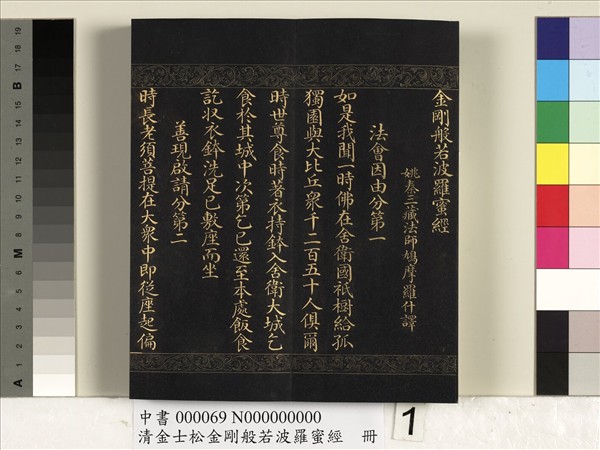 金剛般若波羅蜜經
姚秦三藏法師鳩摩羅什譯
法會因由分第一
如是我聞一時佛在舍衛國祇樹給孤
獨園與大比丘眾千二百五十人俱爾
時世尊食時著衣持鉢入舍衛大城乞
食於其城中次第乞已還至本處飯食
訖収衣鉢洗足已敷座而坐
善現啟請分第二
時長老須菩提在大眾中即從座起偏
A 1 2 3 4 5 6 M 8 9 10 11 12 13 14 15 B 17 18 19
中書 000069 N000000000
清金士松金剛般若波羅蜜經 冊
1